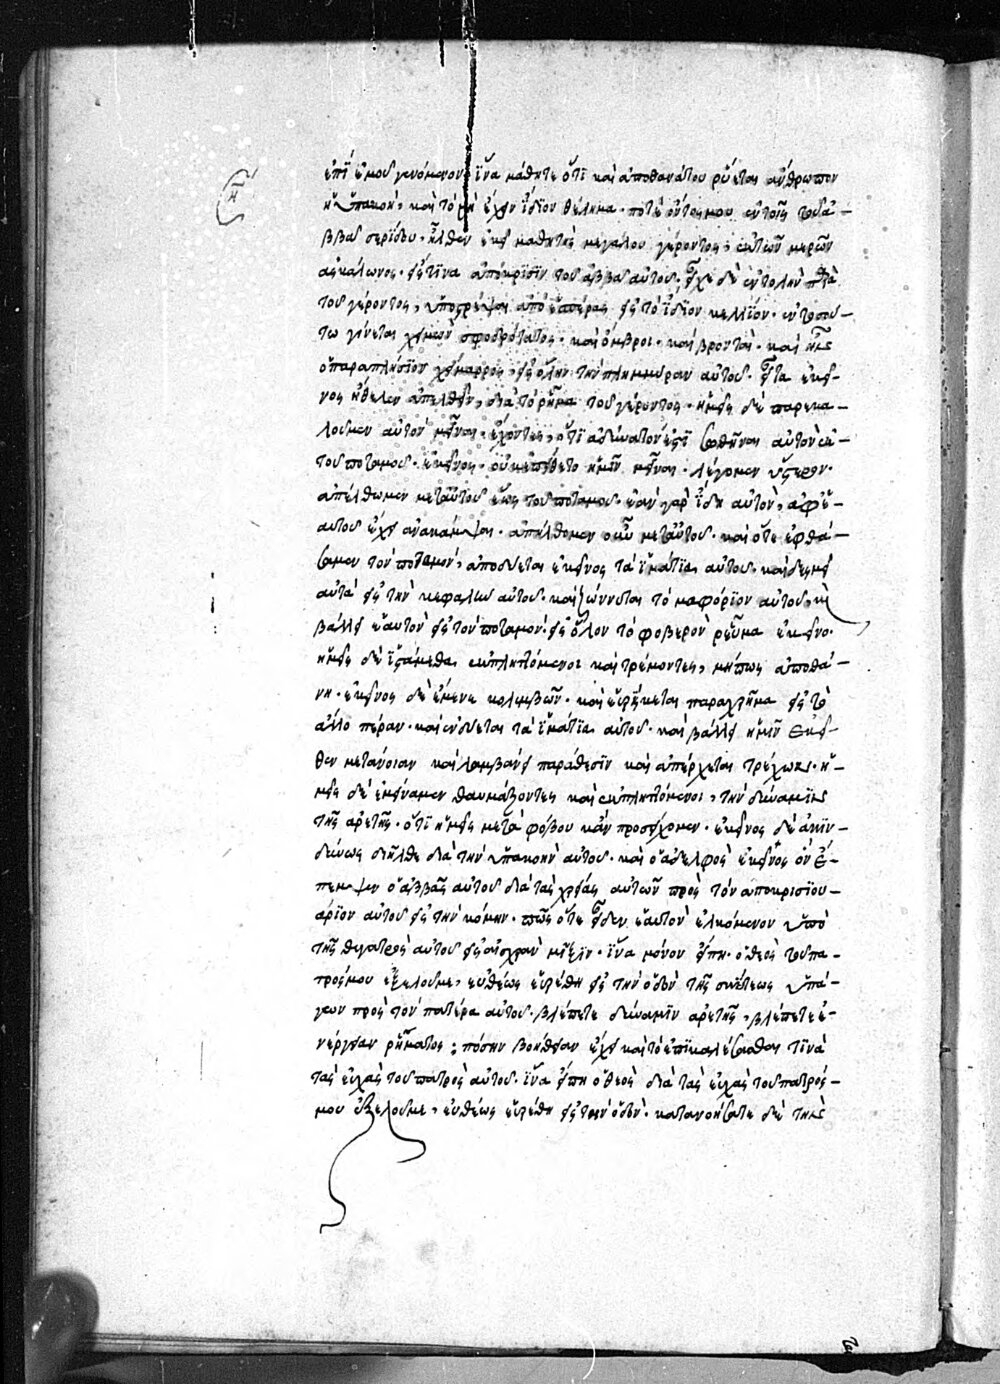 ἐπὶ ἐμοῦ γενόμενον, ἵνα μάθητε ὅτι καὶ ἀπὸ θανάτου ῥύεται ἄνθρωπον
ἡ ὑπακοὴ, καὶ τὸ μὴ ἔχειν ἴδιον θέλημα. ποτὲ ὄντος μου ἐν τοῖς τοῦ ἀ-
ββᾶ σερίδου. ἦλθεν εἷς μαθητὴς μεγάλου γέροντος, ἐκ τῶν μερῶν
ἀσκάλωνος. εἰς τινα ἀπόκρισιν τοῦ ἀββᾶ αὐτοῦ. εἶχε δὲ ἐντολὴν παρὰ
τοῦ γέροντος, ὑποστρέψαι ἀπὸ ἑσπέρας εἰς τὸ ἴδιον κελλίον. ἐν τοσού-
τω γίνεται χειμὼν σφοδρότατος. καὶ ὄμβροι. καὶ βρονταὶ. καὶ
ὁ παραπλήσιον χείμαρρος, εἰς ὅλην τὴν πλημμύραν αὐτοῦ. εἶτα ἐκεῖ-
νος ἤθελεν ἀπελθεῖν, διὰ τὸ ῥῆμα τοῦ γέροντος. ἡμεῖς δὲ παρεκα-
λοῦμεν αὐτὸν μεῖναι. ἔχοντες, ὅτι ἀδύνατόν ἐστι σωθῆναι αὐτὸν ἐκ
τοῦ ποταμοῦ. ἐκεῖνος. οὐκ ἐπείθετο ἡμῖν μεῖναι. λέγομεν ὕστερον.
ἀπέλθωμεν μετ' αὐτοῦ ἕως τοῦ ποταμοῦ. ἐὰν γὰρ ἴδη αὐτὸν, ἀφ' ἑ-
αυτοῦ ἔχει ἀνακάμψαι. ἀπήλθομεν οὖν μετ' αὐτοῦ. καὶ ὅτε ἐφθά-
σαμεν τὸν ποταμὸν, ἀποδύεται ἐκεῖνος τὰ ἱμάτια αὐτοῦ. καὶ δεσμεῖ
αὐτὰ εἰς τὴν κεφαλὴν αὐτοῦ. καὶ ζώννυται τὸ μαφόριον αὐτοῦ, καὶ
βάλλει ἑαυτὸν εἰς τὸν ποταμὸν. εἰς ὅλον τὸ φοβερὸν ῥεῦμα ἐκεῖνο.
ἡμεῖς δὲ ἱστάμεθα ἐκπληττόμενοι καὶ τρέμοντες, μήπως ἀποθά-
νη. ἐκεῖνος δὲ ἔμεινε κολυμβῶν. καὶ εὑρίσκεται παραχρῆμα εἰς τὸ
ἄλλο πέραν. καὶ ἐνδύεται τὰ ἱμάτια αὐτοῦ. καὶ βάλλει ἡμῖν ἐκεῖ-
θεν μετάνοιαν καὶ λαμβάνει παράθεσιν καὶ ἀπέρχεται τρέχων. ἡ-
μεῖς δὲ ἐμείναμεν θαυμάζοντες καὶ ἐκπληττόμενοι, τὴν δύναμιν
τῆς ἀρετῆς. ὅτι ἡμεῖς μετὰ φόβου κἂν προσείχομεν. ἐκεῖνος δὲ ἀκιν-
δύνως διῆλθε διὰ τὴν ὑπακοὴν αὐτοῦ. καὶ ὁ ἀδελφὸς ἐκεῖνος ὃν ἔ-
πεμψεν ὁ ἀββᾶς αὐτοῦ διὰ τὰς χρείας αὐτῶν πρὸς τὸν ἀποκρισιου-
άριον αὐτοῦ εἰς τὴν κώμην. πῶς ὅτε εἶδεν ἑαυτὸν ἑλκόμενον ὑπὸ
τῆς θυγατρὸς αὐτοῦ εἰς αἰσχρὰν μίξιν. ἵνα μόνον εἴπη. ὁ θεὸς τοῦ πα-
τρός μου ἐξελοῦ με, εὐθέως εὑρέθη εἰς τὴν ὁδὸν τῆς σκήτεως ὑπά-
γων πρὸς τὸν πατέρα αὐτοῦ. βλέπετε δύναμιν ἀρετῆς, βλέπετε ἐ-
νέργειαν ῥήματος; πόσην βοήθειαν ἔχει καὶ τὸ ἐπικαλέσασθαι τινὰ
τὰς εὐχὰς τοῦ πατρὸς αὐτοῦ. ἵνα εἴπη ὁ θεὸς διὰ τὰς εὐχὰς τοῦ πατρός-
μου ἐξελοῦ με, εὐθέως εὑρέθη εἰς τὴν ὁδὸν. κατανοήσατε δὲ τῆς